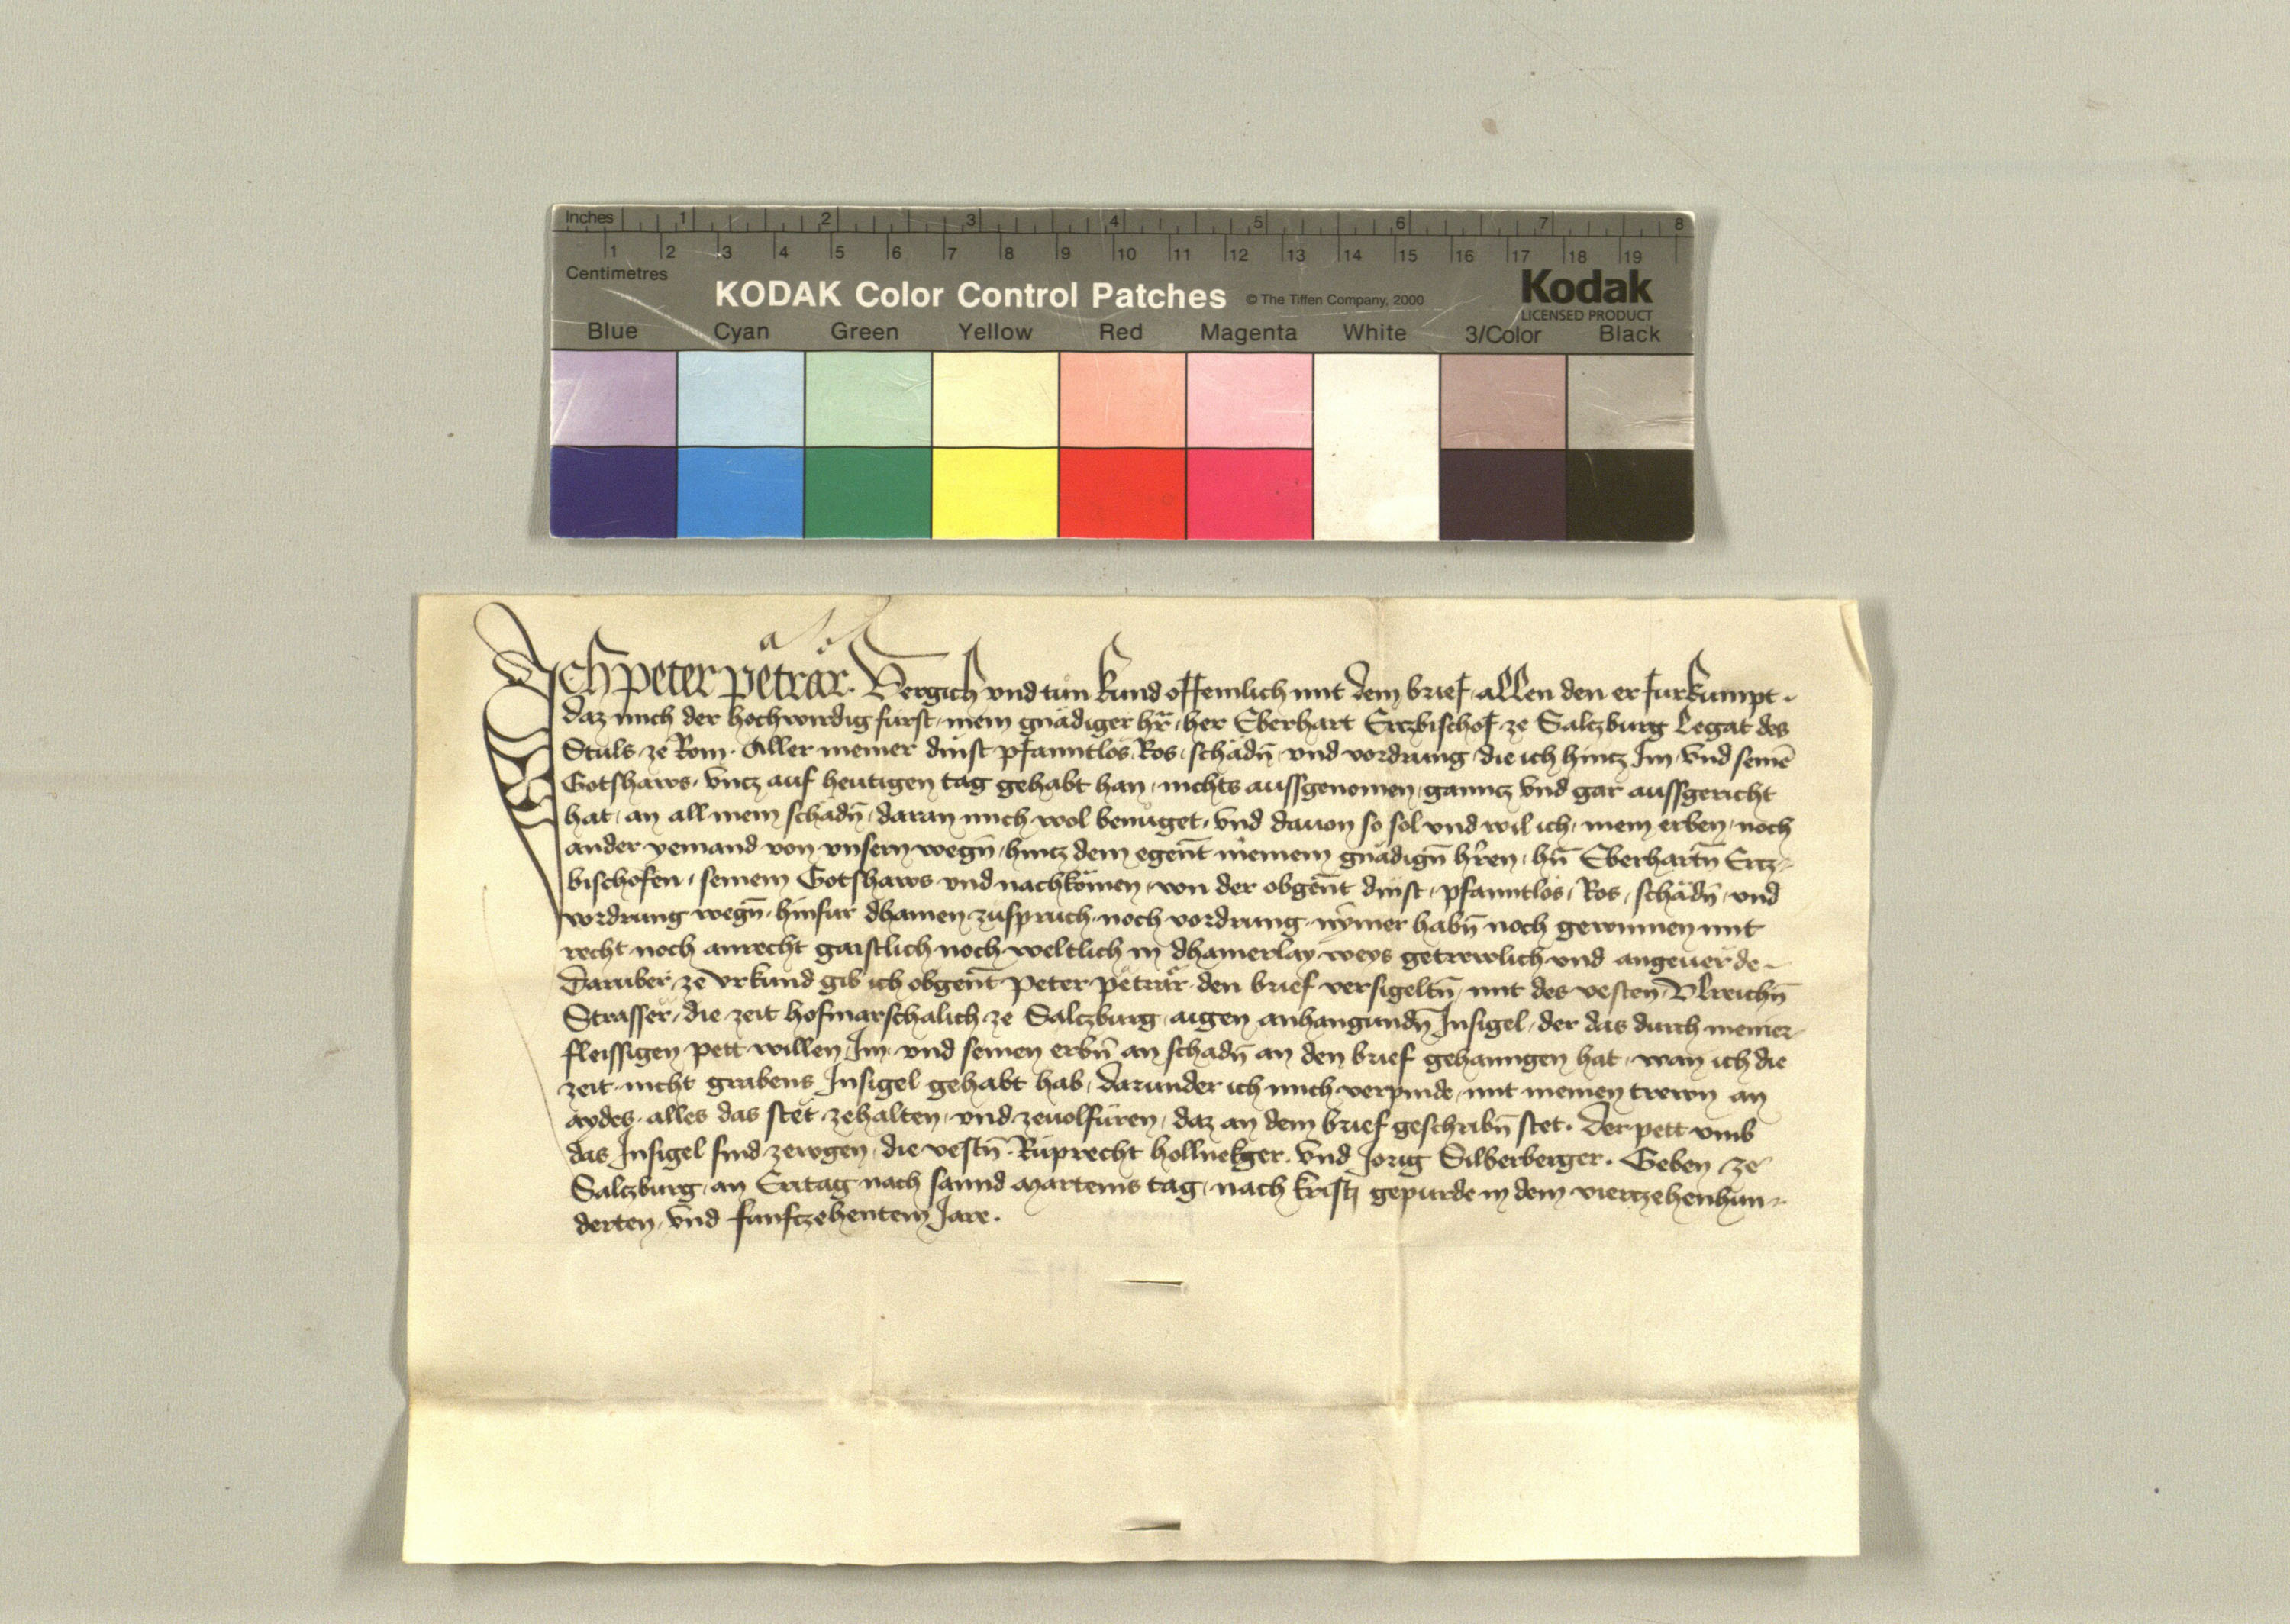 Inches 1 2 3 4 5 6 7 8
1 2 3 4 5 6 7 8 9 10 11 12 13 14 15 16 17 18 19
Centimetres
KODAK Color Control Patches © The Tiffen Company, 2000 Kodak
LICENSED PRODUCT
Blue Cyan Green Yellow Red Magenta White 3/Color Black
Ich peter peträr. Vergich vnd tun kund offemlich mit dem brief allen den er furkumpt.
daz mich der hochwirdig fürst mein gnädiger hr̄ her Eberhart Erczbischof ze Salczburg Legat des
Stuls ze Rom. Aller meiner dinst pfanntlos Ros schädn̄ vnd vordrung die ich hincz Im vnd seinē
Gotshaws vncz auf heutigen tag gehabt han nichts aussgenomen ganncz vnd gar aussgericht
hat an all mein schädn̄ daran mich wol benüget vnd dauon so sol vnd wil ich mein erben noch
ander yemand von vnsern wegn̄ hincz dem egen̄t meinem gnädign̄ hr̄en hn̄ Eberhartn̄ Ercz-
bischofen seinem Gotshaws vnd nachkömen von der obgen̄t dinst pfanntlos Ros schädn̄ vnd
vordrung wegn̄ hinfur dhainen zuspruch noch vordrung nymer habn̄ noch gewinnen mit
recht noch anrecht gaistlich noch weltlich in dhainerlay weys getrewlich vnd angeuerde
Daruber ze vrkund gib ich obgen̄t Peter peträr den brief versigeltn̄ mit des vesten Vlreichn̄
Strasser die zeit hofmarschalich ze Salczburg aigen anhangundn̄ Insigel der das durch meiner
fleissigen pett willen Im vnd seinen erbn̄ an schadn̄ an den brief gehanngen hat wan ich die
zeit nicht grabens Insigel gehabt hab darunder ich mich verpinde mit meinen trewn an
aydes alles das stet zehalten vnd zeuolfüren daz an dem brief geschribn̄ stet. Der pett vmb
das Insigel sind zewgen die vestn̄ Ruprecht hollnekger. vnd Jorig Silberberger. Geben ze
Salczburg an Eritag nach sannd Marteins tag nach Kristi gepurde in dem vierczehenhun-
derten vnd funfczehentem Jare.